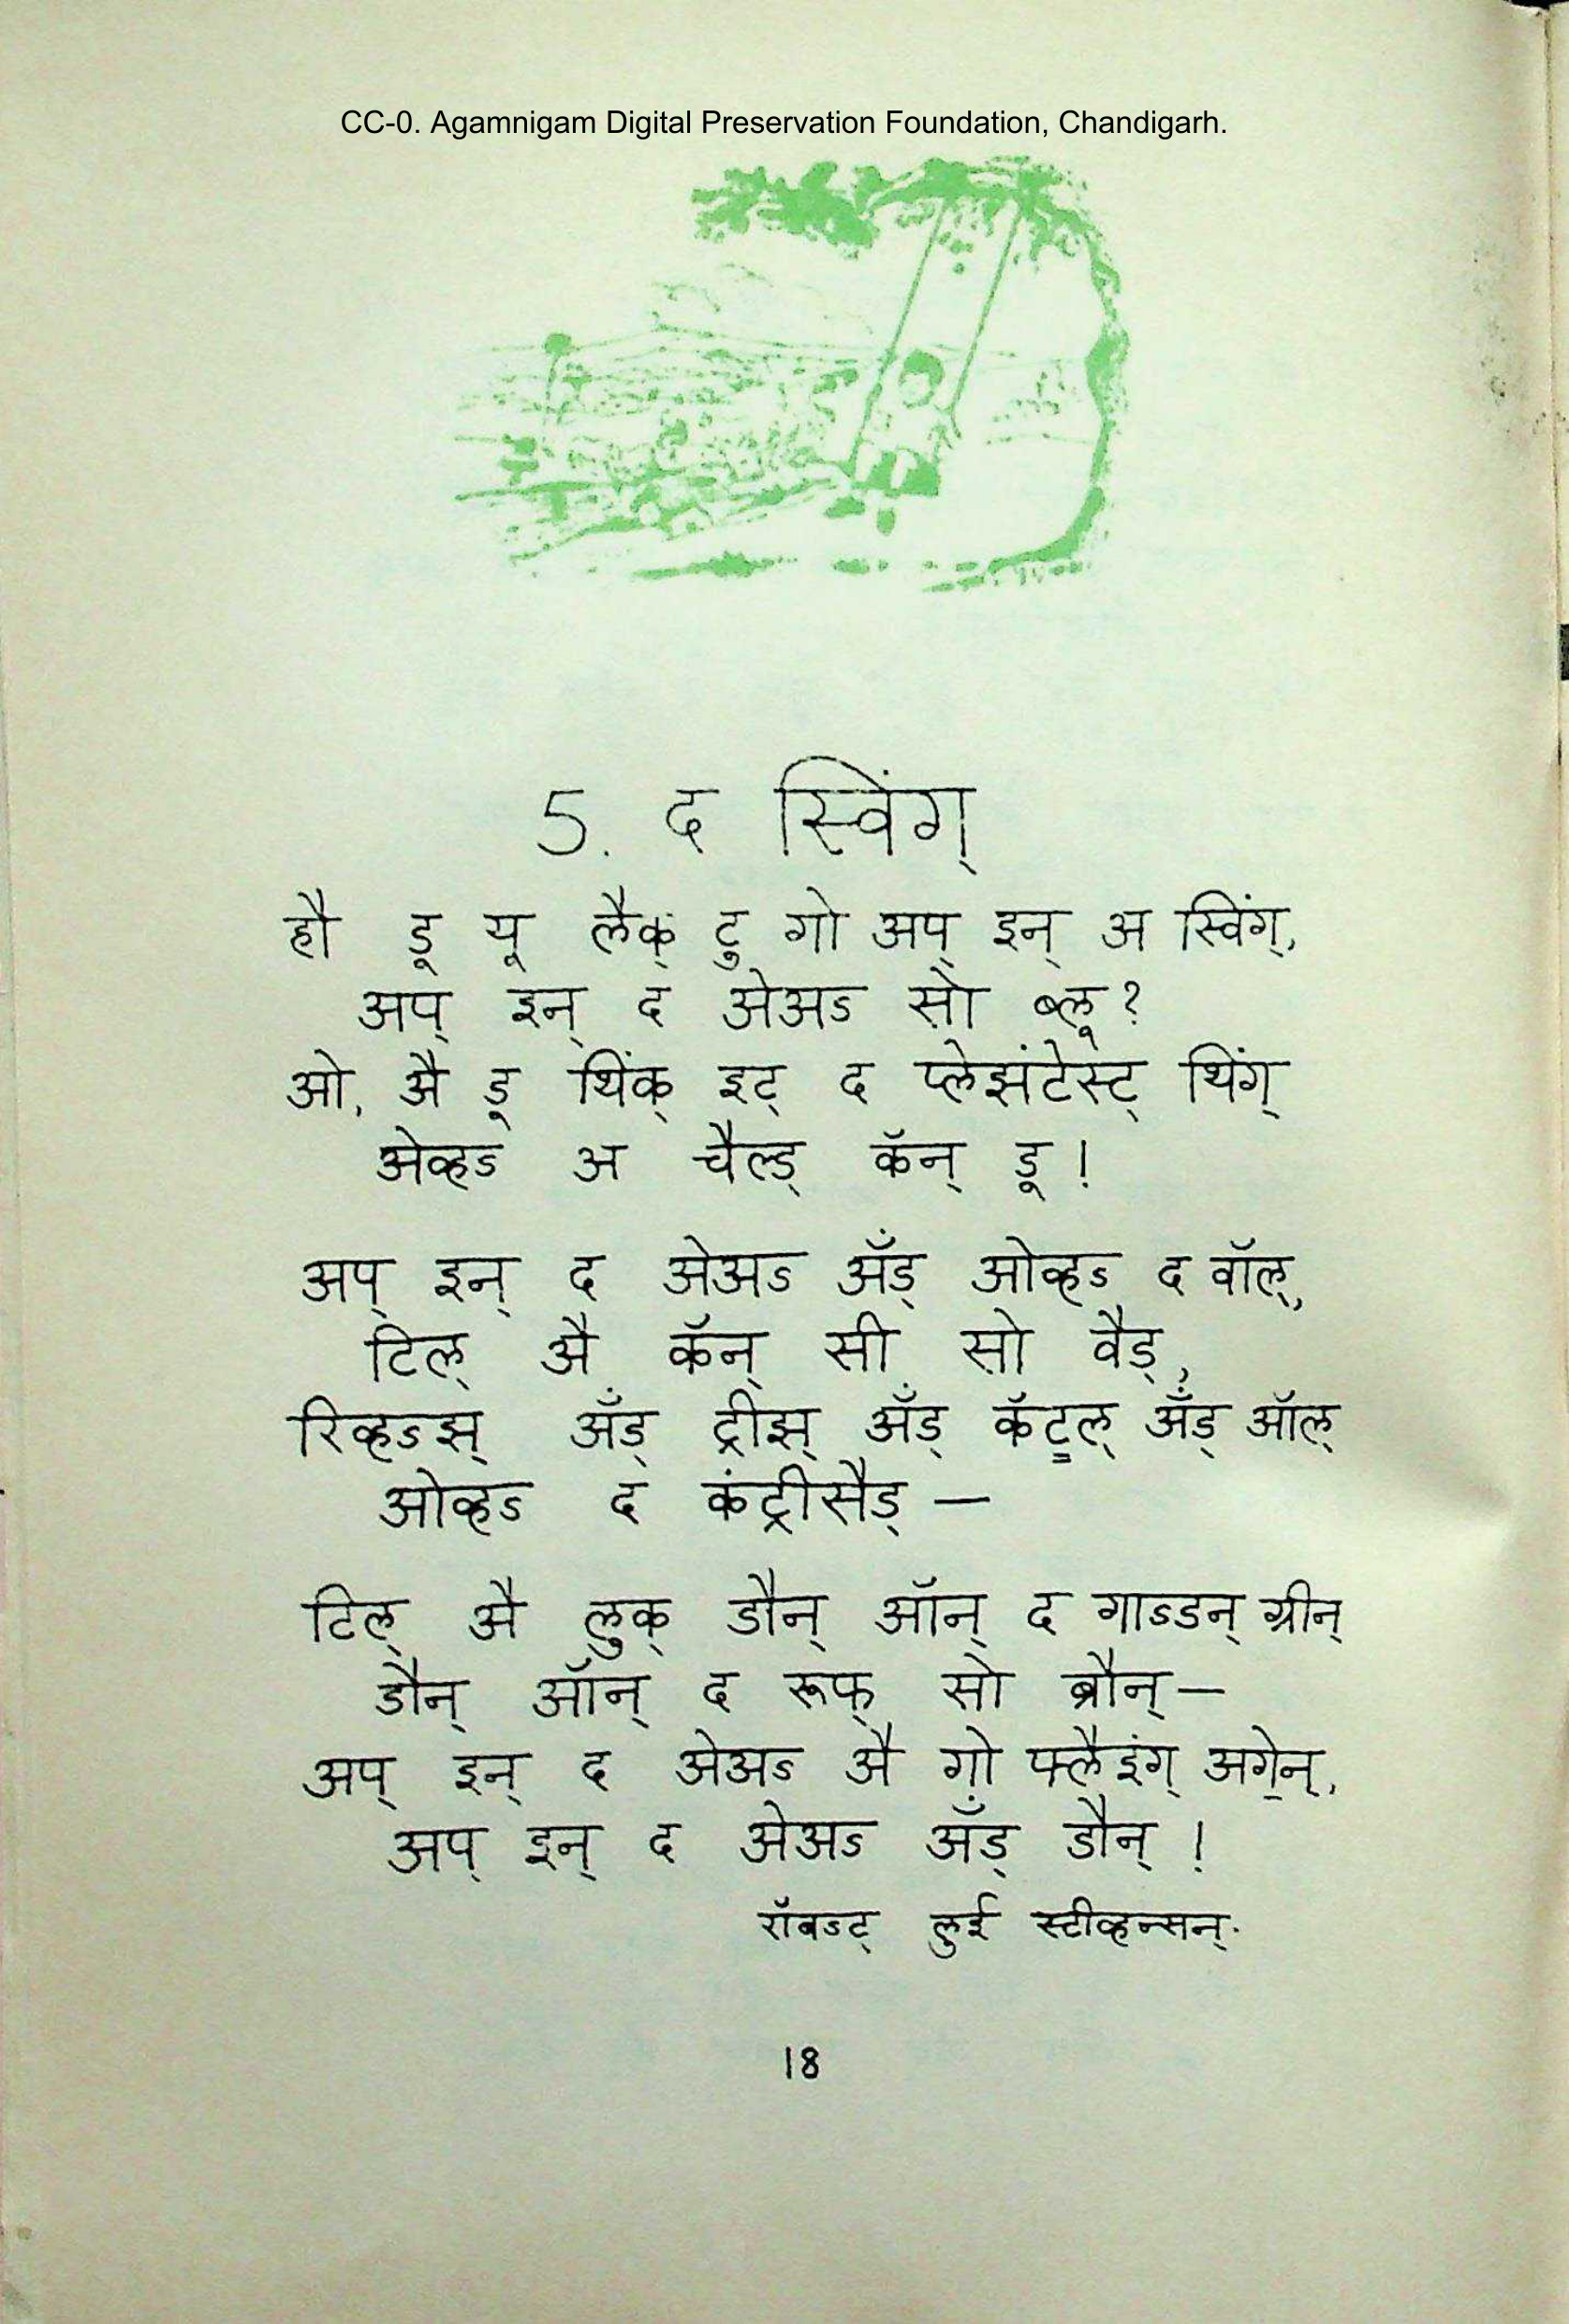 CC-0. Agamnigam Digital Preservation Foundation, Chandigarh.
5. द स्विंग्
हौ डू यू लैक् टु गो अप् इन् अ स्विंग्,
अप् इन् द अेअऽ सो ब्लू?
ओ, अै डू थिंक् इट् द प्लेझंटेस्ट् थिंग्
अेव्हऽ अ चैल्ड् कॅन् डू!
अप् इन् द अेअऽ अँड् ओव्हऽ द वॉल्,
टिल् अै कॅन् सी सो वैड्,
रिव्हऽझ् अँड् ट्रीझ् अँड् कॅट्ल् अँड् ऑल्
ओव्हऽ द कंट्रीसैड् —
टिल् अै लुक् डौन् ऑन् द गाऽडन् ग्रीन्
डौन् ऑन् द रूफ् सो ब्रौन् —
अप् इन् द अेअऽ अै गो फ्लैइंग् अगे॒न्,
अप् इन् द अेअऽ अँड् डौन् !
रॉबऽट् लुई स्टीव्हन्सन्.
18